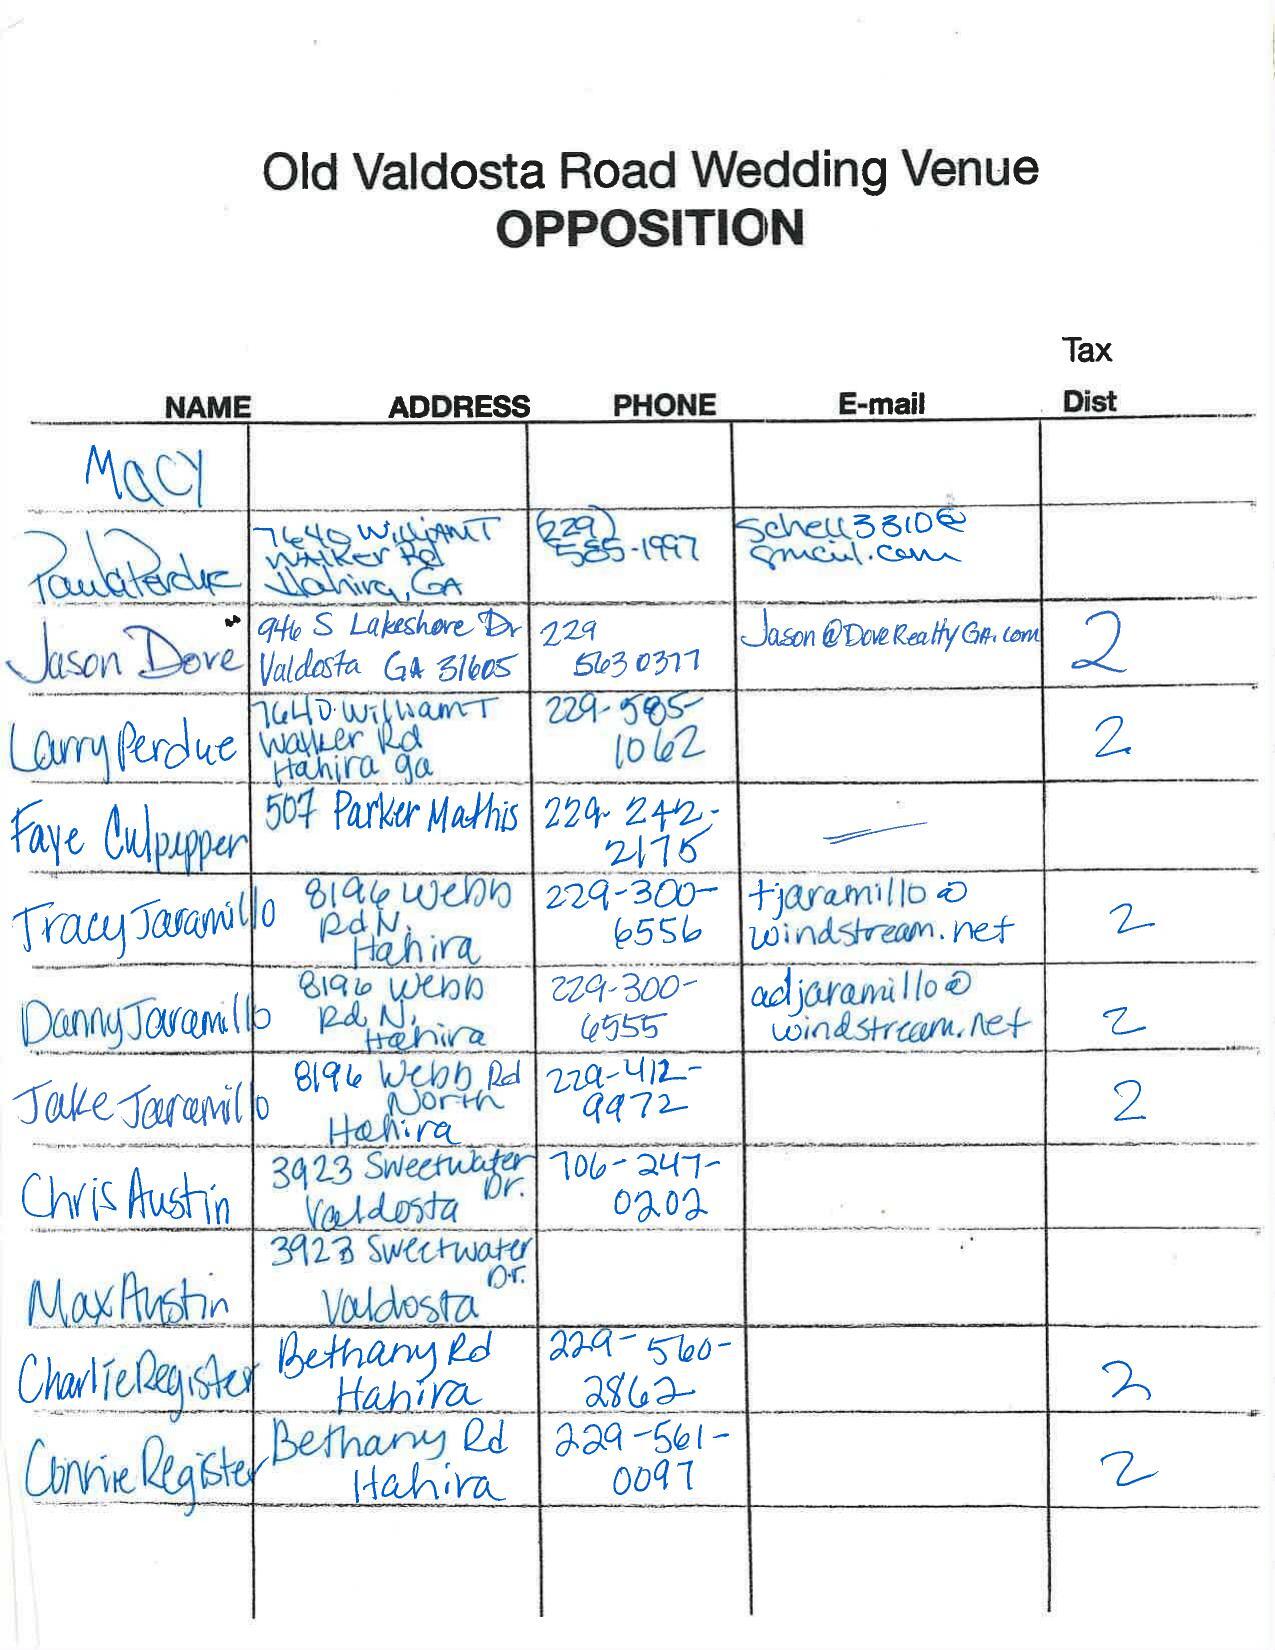 Old Valdosta Road Wedding Venue
OPPOSITION
Tax
NAME ADDRESS PHONE E-mail Dist
Macy
Paula Perdue
7640 William T
Walker Rd
Hahira, GA
(229)
585-1997
schell3310@
gmail.com
Jason Dove
946 S Lakeshore Dr
Valdosta GA 31605
229
563 0377
Jason@DoveRealtyGA.com
2
Larry Perdue
7640 William T
Walker Rd
Hahira ga
229-585-
1062
2
Faye Culpepper
507 Parker Mathis
229-242-
2175
Tracy Jaramillo
8196 Webb
Rd N.
Hahira
229-300-
6556
tjaramillo@
windstream.net
2
Danny Jaramillo
8196 Webb
Rd N.
Hahira
229-300-
6555
adjaramillo@
windstream.net
2
Jake Jaramillo
8196 Webb Rd
North
Hahira
229-412-
9972
2
Chris Austin
3923 Sweetwater
Dr.
Valdosta
706-247-
0202
Max Austin
3923 Sweetwater
Dr.
Valdosta
Charlie Register
Bethany Rd
Hahira
229-560-
2862
2
Connie Register
Bethany Rd
Hahira
229-561-
0097
2